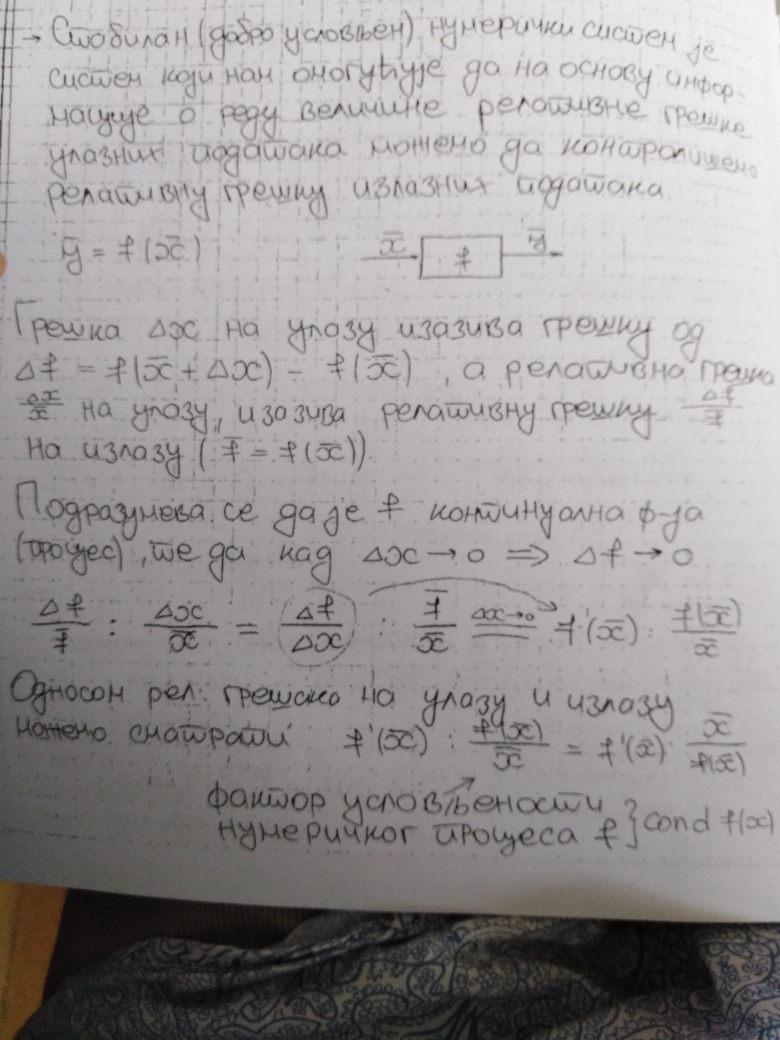 → Стабилан (добро условљен) нумерички систем је
систем који нам омогућује да на основу инфор-
мације о реду величине релативне грешке
улазних података можемо да контролишемо
релативну грешку излазних података
ȳ = f(x̄)
x̄ f ȳ
Грешка Δx на улазу изазива грешку од
Δf = f(x̄ + Δx) - f(x̄) , а релативна грешка
Δx/x̄ на улазу, изазива релативну грешку Δf/f̄
на излазу ( f̄ = f(x̄)).
Подразумева се да је f континуална ф-ја
(процес), те да кад Δx → 0 ⇒ Δf → 0
Δf/f̄ : Δx/x̄ = Δf/Δx : f̄/x̄ =(Δx→0)= f'(x̄) : f(x̄)/x̄
Односом рел. грешака на улазу и излазу
можемо сматрати f'(x̄) : f(x̄)/x̄ = f'(x̄) · x̄/f(x̄)
фактор условљености
нумеричког процеса f } cond f(x)